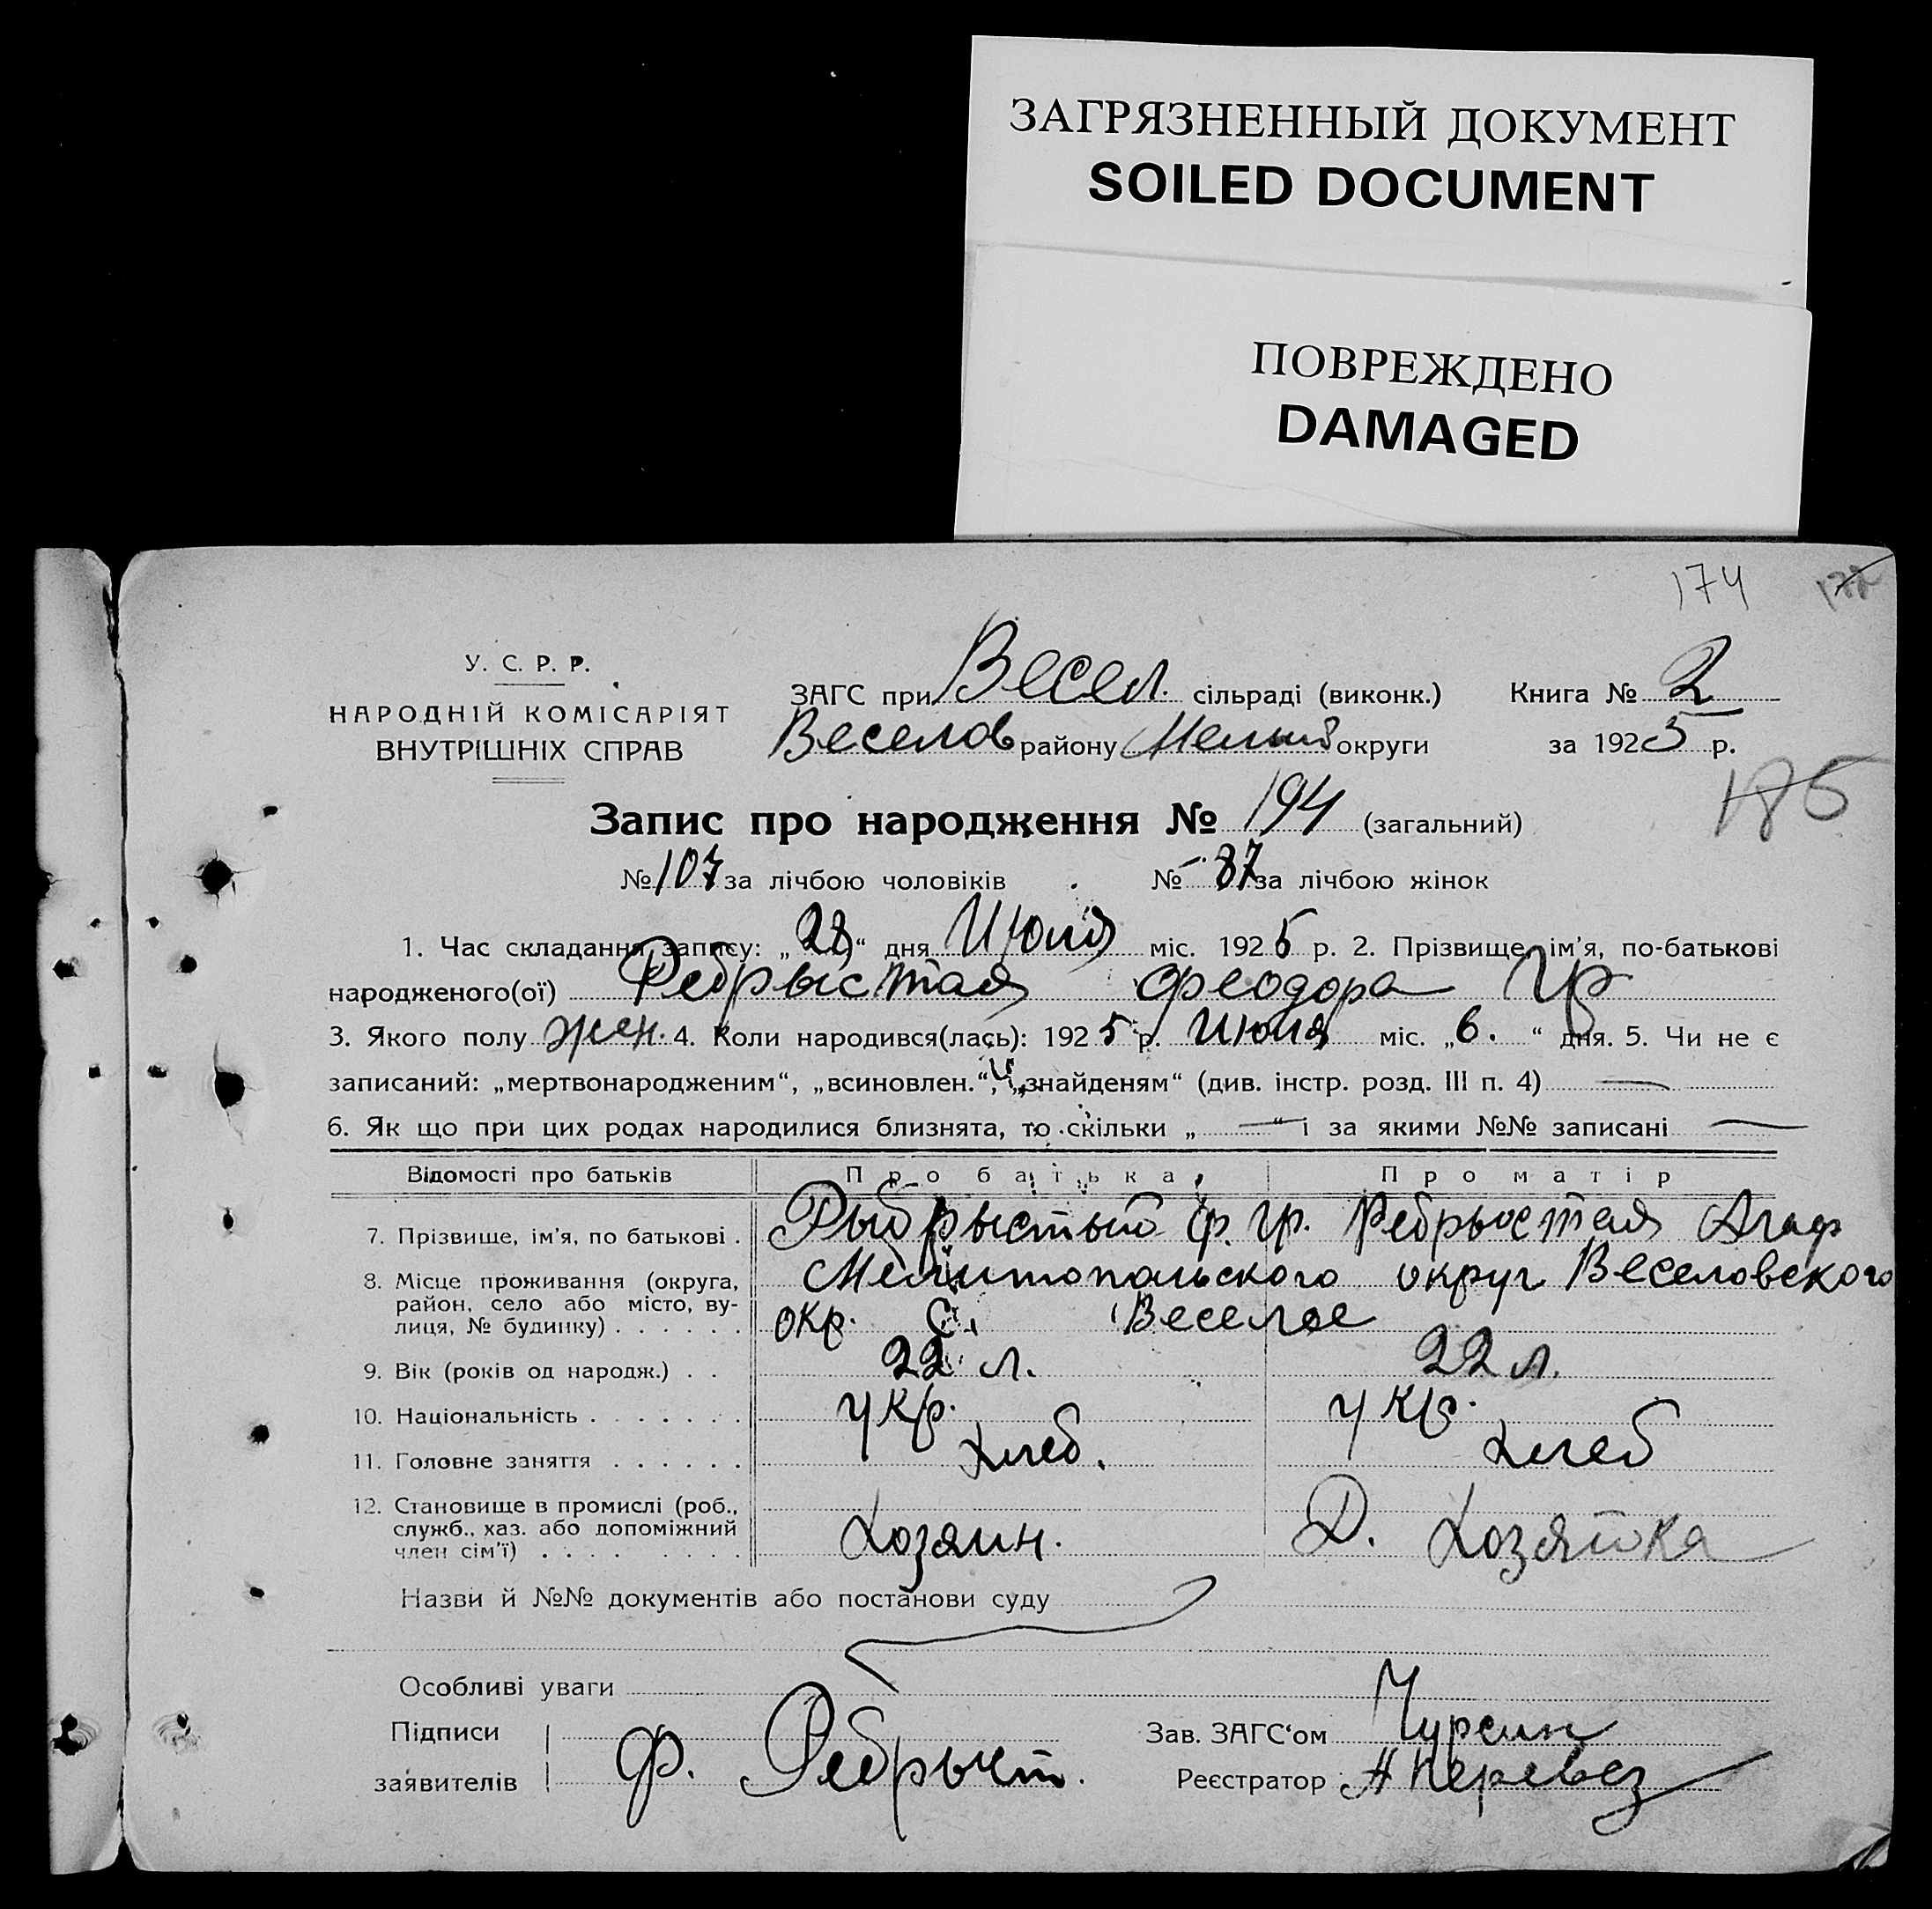 ЗАГРЯЗНЕННЫЙ ДОКУМЕНТ
SOILED DOCUMENT
ПОВРЕЖДЕНО
DAMAGED
174
У. С. Р. Р.
НАРОДНІЙ КОМІСАРІЯТ
ВНУТРІШНІХ СПРАВ
ЗАГС при Весел. сільраді (виконк.) Книга № 2
Веселов району округи за 1925 р.
185
Запис про народження № 194 (загальний)
№ 107 за лічбою чоловіків № 87 за лічбою жінок
1. Час складання запису: „28“ дня Июля міс. 1925 р. 2. Прізвище, ім'я, по-батькові
народженого(ої) Ребрыстая Феодора Гр
3. Якого полу жен. 4. Коли народився(лась): 1925 р. Июля міс. „6.“ дня. 5. Чи не є
записаний: „мертвонародженим“, „всиновлен.“, „знайденям“ (див. інстр. розд. III п. 4) —
6. Як що при цих родах народилися близнята, то скільки „—“ і за якими №№ записані —
Відомості про батьків Про батька Про матір
7. Прізвище, ім'я, по батькові . Рыбрыстый Ф. Гр. Ребрыстая Агаф
8. Місце проживання (округа, район, село або місто, вулиця, № будинку) . . . . . . Мелитопольского округ Веселовского
окр. С. Веселое
9. Вік (років од народж.) . . 22 л. 22 л.
10. Національність . . . . . . . укр. укр.
11. Головне заняття . . . . . . хлеб. хлеб
12. Становище в промислі (роб., служб., хаз. або допоміжний член сім'ї) . . . . . . . . Хозяин. Д. Хозяйка
Назви й №№ документів або постанови суду
Особливі уваги
Підписи Зав. ЗАГС‘ом Чурсин
заявителів Ф. Ребрыст. Реєстратор А Перевез